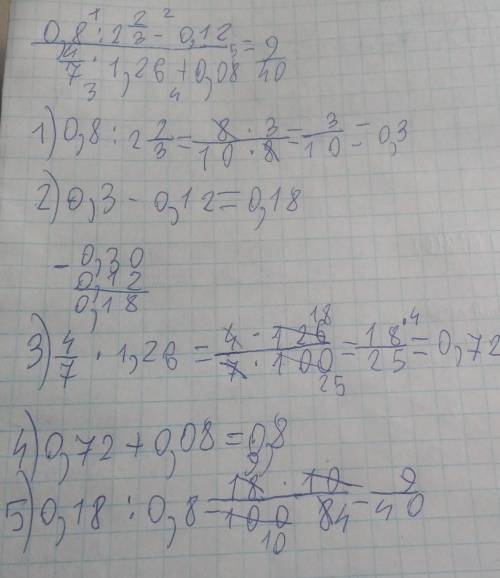 1 2
0,8 : 2 2/3 - 0,12 5 = 9/40
4/7 · 1,26 + 0,08
3 4
1) 0,8 : 2 2/3 = 8 · 3 / 10 · 8 = 3/10 = 0,3
2) 0,3 - 0,12 = 0,18
- 0,30
0,12
0,18
3) 4/7 · 1,26 = 4 · 126 18 / 7 · 100 25 = 18 ·4 / 25 = 0,72
4) 0,72 + 0,08 = 0,8
5) 0,18 : 0,8 = 9 18 · 10 / 100 10 84 = 9/40